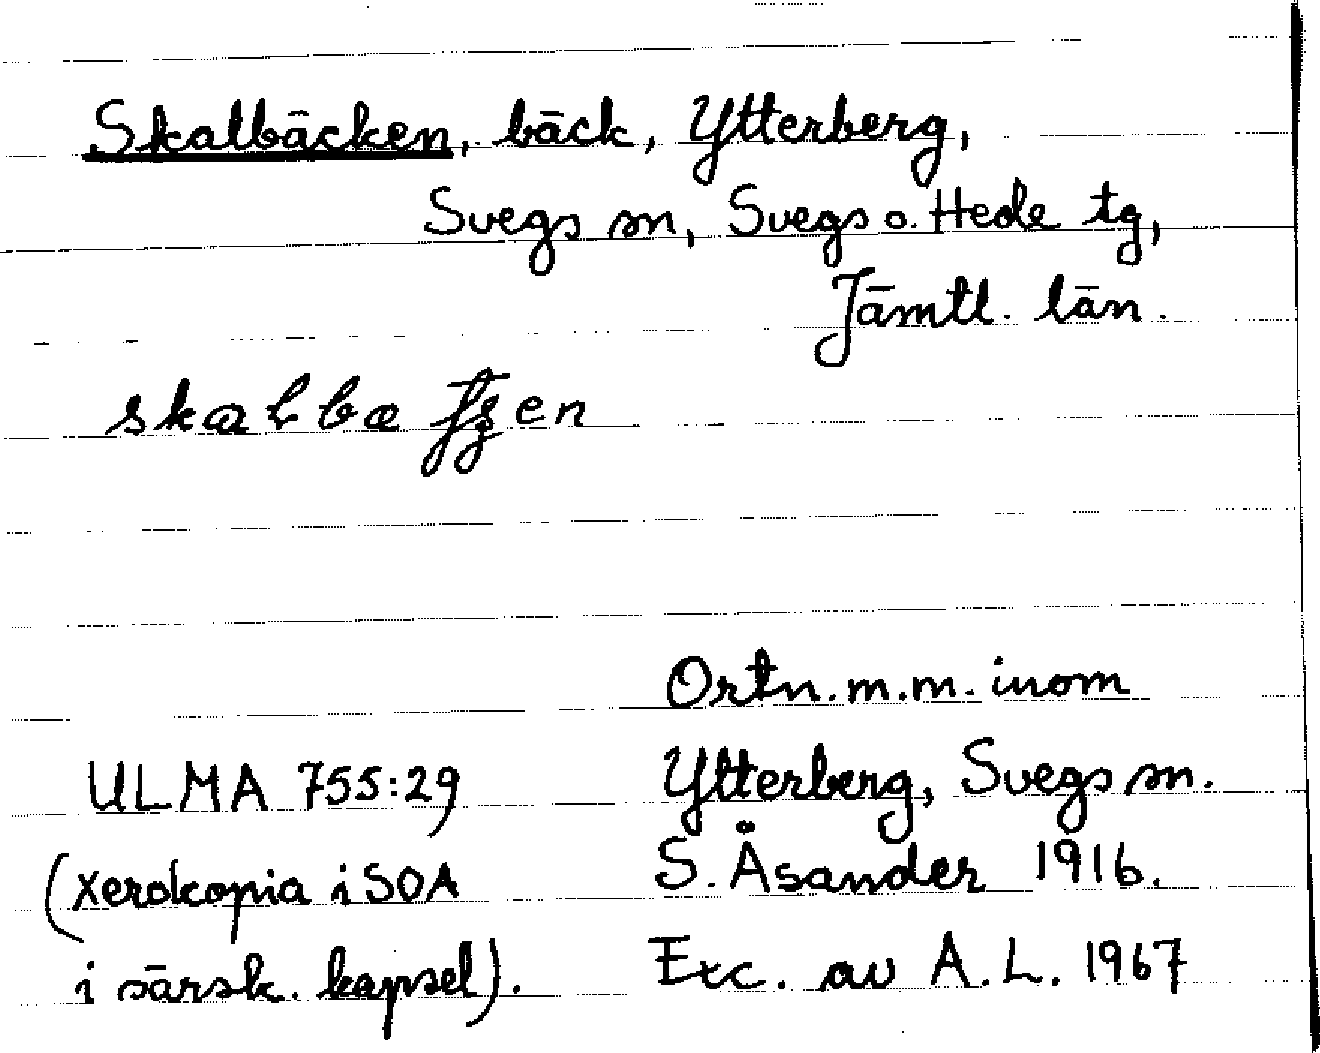 Skalbäcken, bäck, Ytterberg,
Svegs sn, Svegs o. Hede tg,
Jämtl. län.
Ortn. m.m. inom
ULMA 755:29 Ytterberg, Svegs sn.
(Xerokopia i SOA S. Åsander 1916.
i särsk. kapsel). Exc. av A. L. 1967